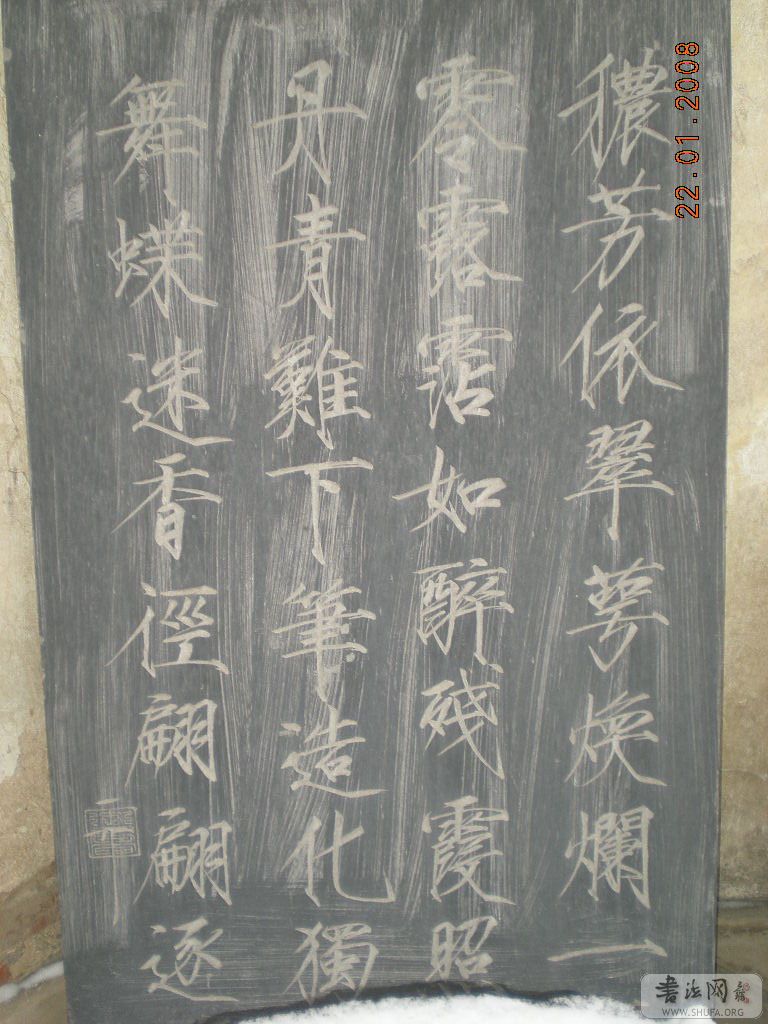 穠芳依翠萼煥爛一
零露霑如醉殘霞照
丹青難下筆造化獨
舞蝶迷香徑翩翩逐
22.01.2008
書法网
WWW.SHUFA.ORG